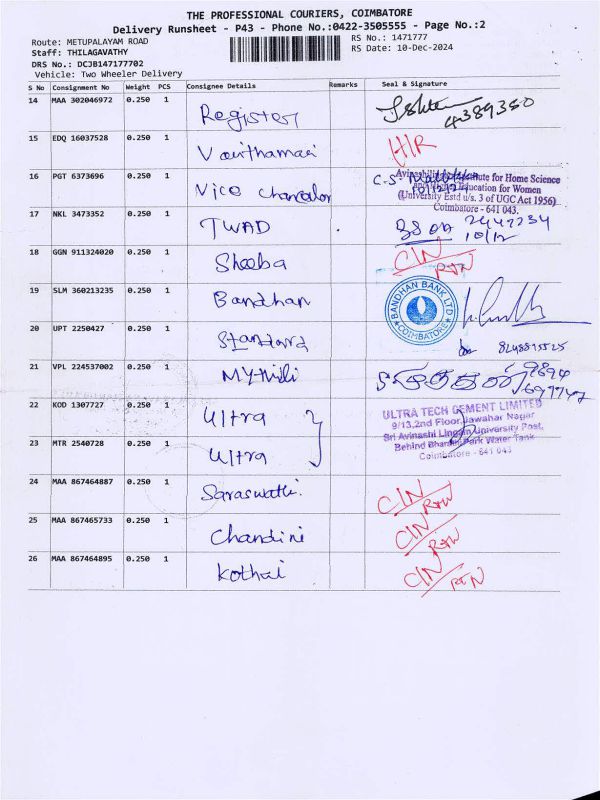 THE PROFESSIONAL COURIERS, COIMBATORE
Delivery Runsheet - P43 - Phone No.:0422-3505555 - Page No.:2
Route: METUPALAYAM ROAD
RS No.: 1471777
Staff: THILAGAVATHY
RS Date: 10-Dec-2024
DRS No.: DCJB147177702
Vehicle: Two Wheeler Delivery
S No Consignment No Weight PCS Consignee Details Remarks Seal & Signature
14 MAA 302046972 0.250 1 Register
15 EDQ 16037528 0.250 1 H/R
16 PGT 6373696 0.250 1 Vice Chancellor
Institute for Home Science
Education for Women
(University Estd u/s. 3 of UGC Act 1956)
Coimbatore - 641 043.
10/12/24
17 NKL 3473352 0.250 1 TWAD
10/12
18 GGN 911324020 0.250 1 Sheeba C/N RTN
19 SLM 360213235 0.250 1 Bandhan
BANDHAN BANK LTD
COIMBATORE
20 UPT 2250427 0.250 1 Standard
21 VPL 224537002 0.250 1 Mythili
22 KOD 1307727 0.250 1 Ultra
ULTRA TECH CEMENT LIMITED
9/13,2nd Floor,Jawahar Nagar
Sri Avinashi Lingam University Post,
Behind Bharathi Park Water Tank
Coimbatore - 641 043
23 MTR 2540728 0.250 1 Ultra
24 MAA 867464887 0.250 1 Saraswathi. C/N RTN
25 MAA 867465733 0.250 1 Chandini C/N RTN
26 MAA 867464895 0.250 1 Kothai C/N RTN